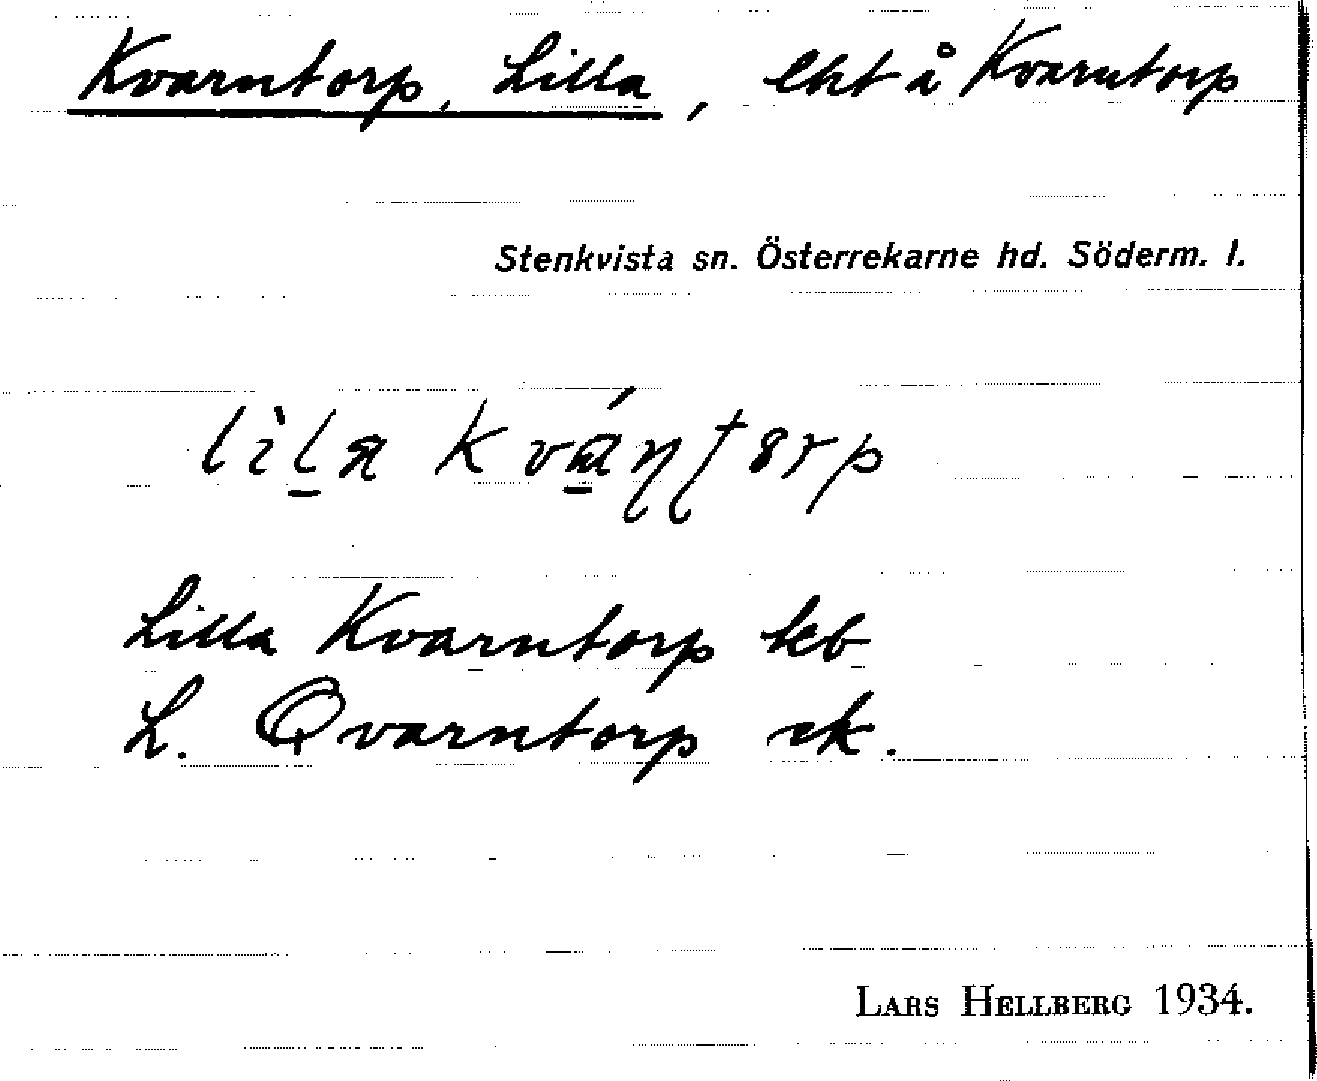 Kvarntorp, Lilla, lht å Kvarntorp
Stenkvista sn. Österrekarne hd. Söderm. l.
Lilla Kvarntorp kb
L. Qvarntorp ek.
Lars Hellberg 1934.